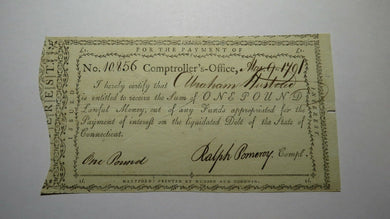 £1. FOR THE PAYMENT OF £1.
No. 10856 Comptroller's-Office, May 1791
I hereby certify that Abraham
is entitled to receive the Sum of ONE POUND
Lawful Money, out of any Funds appropriated for the
Payment of interest on the liquidated Debt of the State of
Connecticut.
One Pound Ralph Pomeroy, Compt.
£1. HARTFORD: PRINTED BY HUDSON AND GOODWIN. £1.